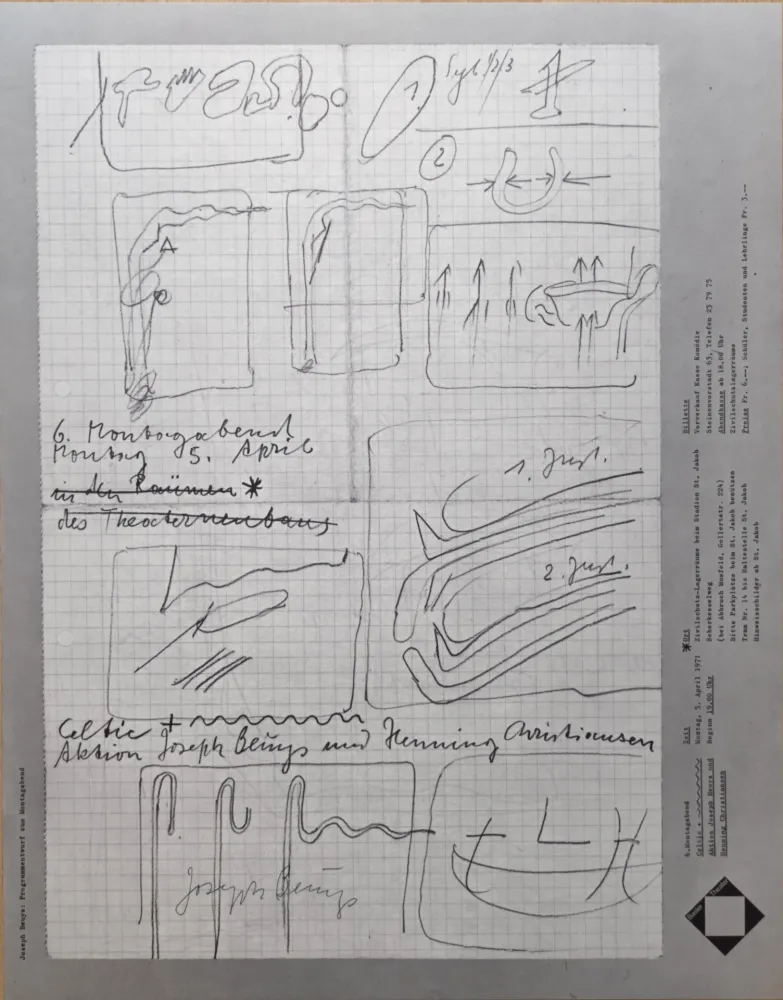 1.
1/2/3
2
A
6. Montagabend
Montag 5. April
in den Räumen *
des Theaterneubaus
1. Inst.
2. Inst.
Celtic +
Aktion Joseph Beuys und Henning Christiansen
Joseph Beuys
Joseph Beuys: Programmentwurf zum Montagabend
6.Montagabend
Celtic +
Aktion Joseph Beuys und
Henning Christiansen
Zeit
Montag, 5. April 1971
Beginn 19.00 Uhr
*Ort
Zivilschutz-Lagerräume beim Stadion St. Jakob
(bei Abbruch Wonfeld, Gellertstr. 224)
Bitte Parkplätze beim St. Jakob benützen
Tram Nr. 14 bis Haltestelle St. Jakob
Hinweisschilder ab St. Jakob
Billette
Vorverkauf Kasse Komödie
Steinenvorstadt 63, Telefon 23 79 75
Abendkasse ab 18.00 Uhr
Zivilschutzlagerräume
Preise Fr. 6.--; Schüler, Studenten und Lehrlinge Fr. 3.--
Basler Theater